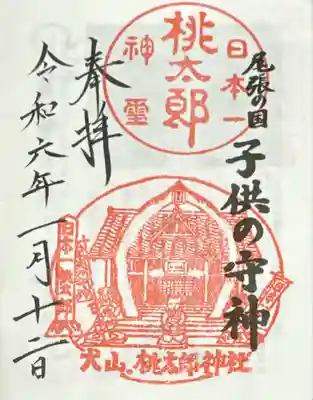 尾張の国
子供の守神
日本一
桃太郎
神璽
奉拝
令和六年一月十二日
日本一
犬山.桃太郎神社